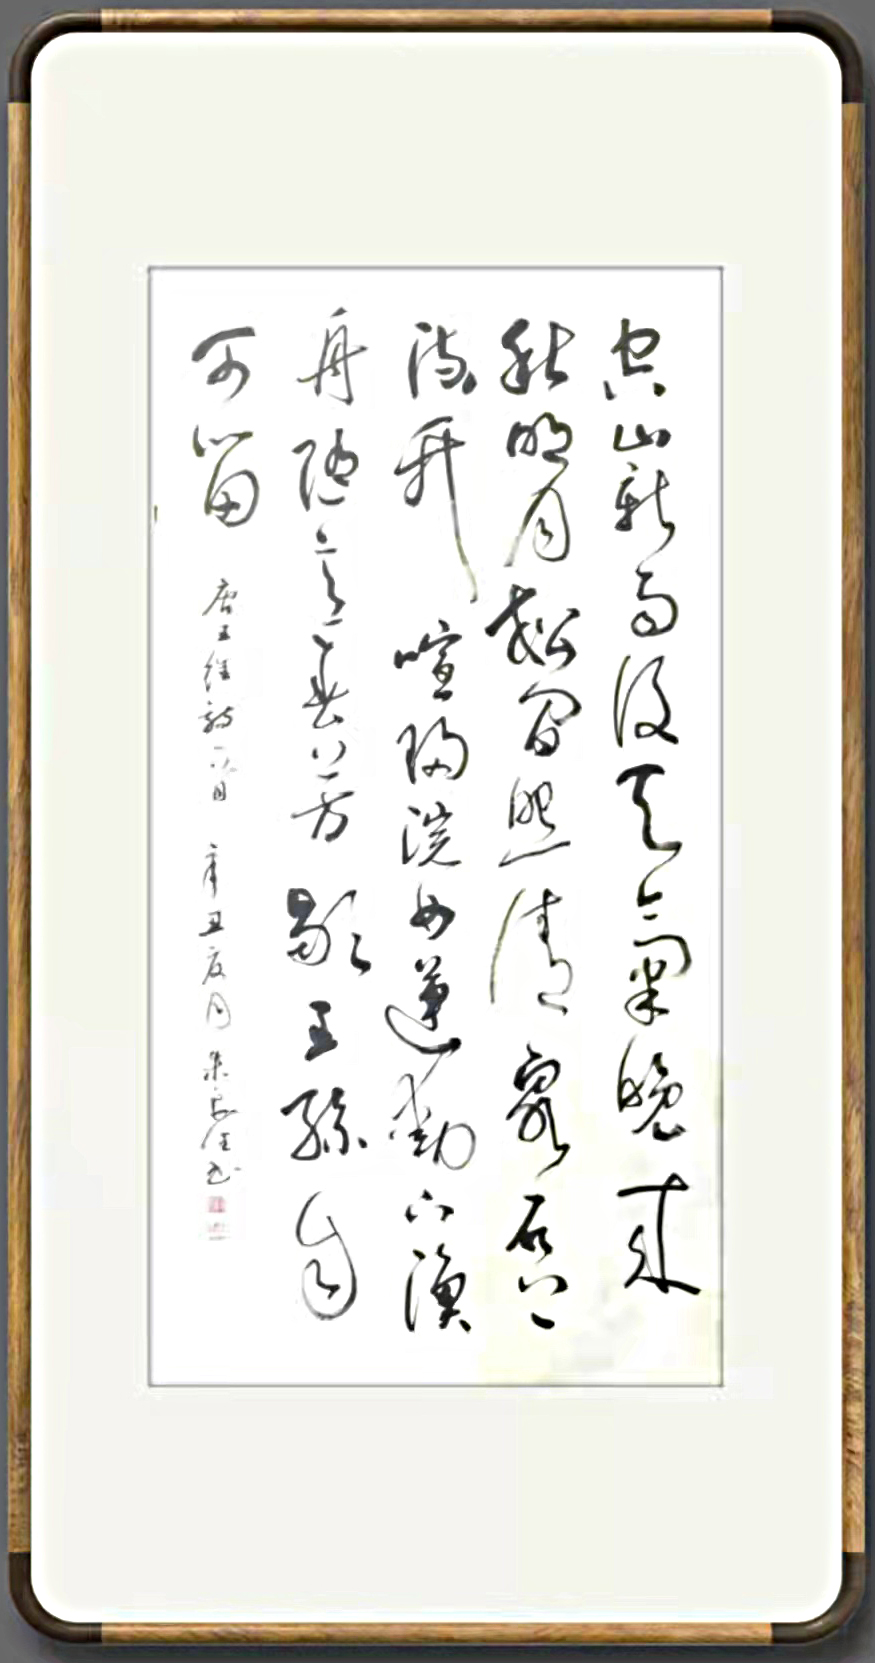 空山新雨後天氣晚來
秋明月松間照清泉石上
流竹喧歸浣女蓮動下漁
舟隨意春芳歇王孫自
可留
唐王維詩一首 辛丑夏月